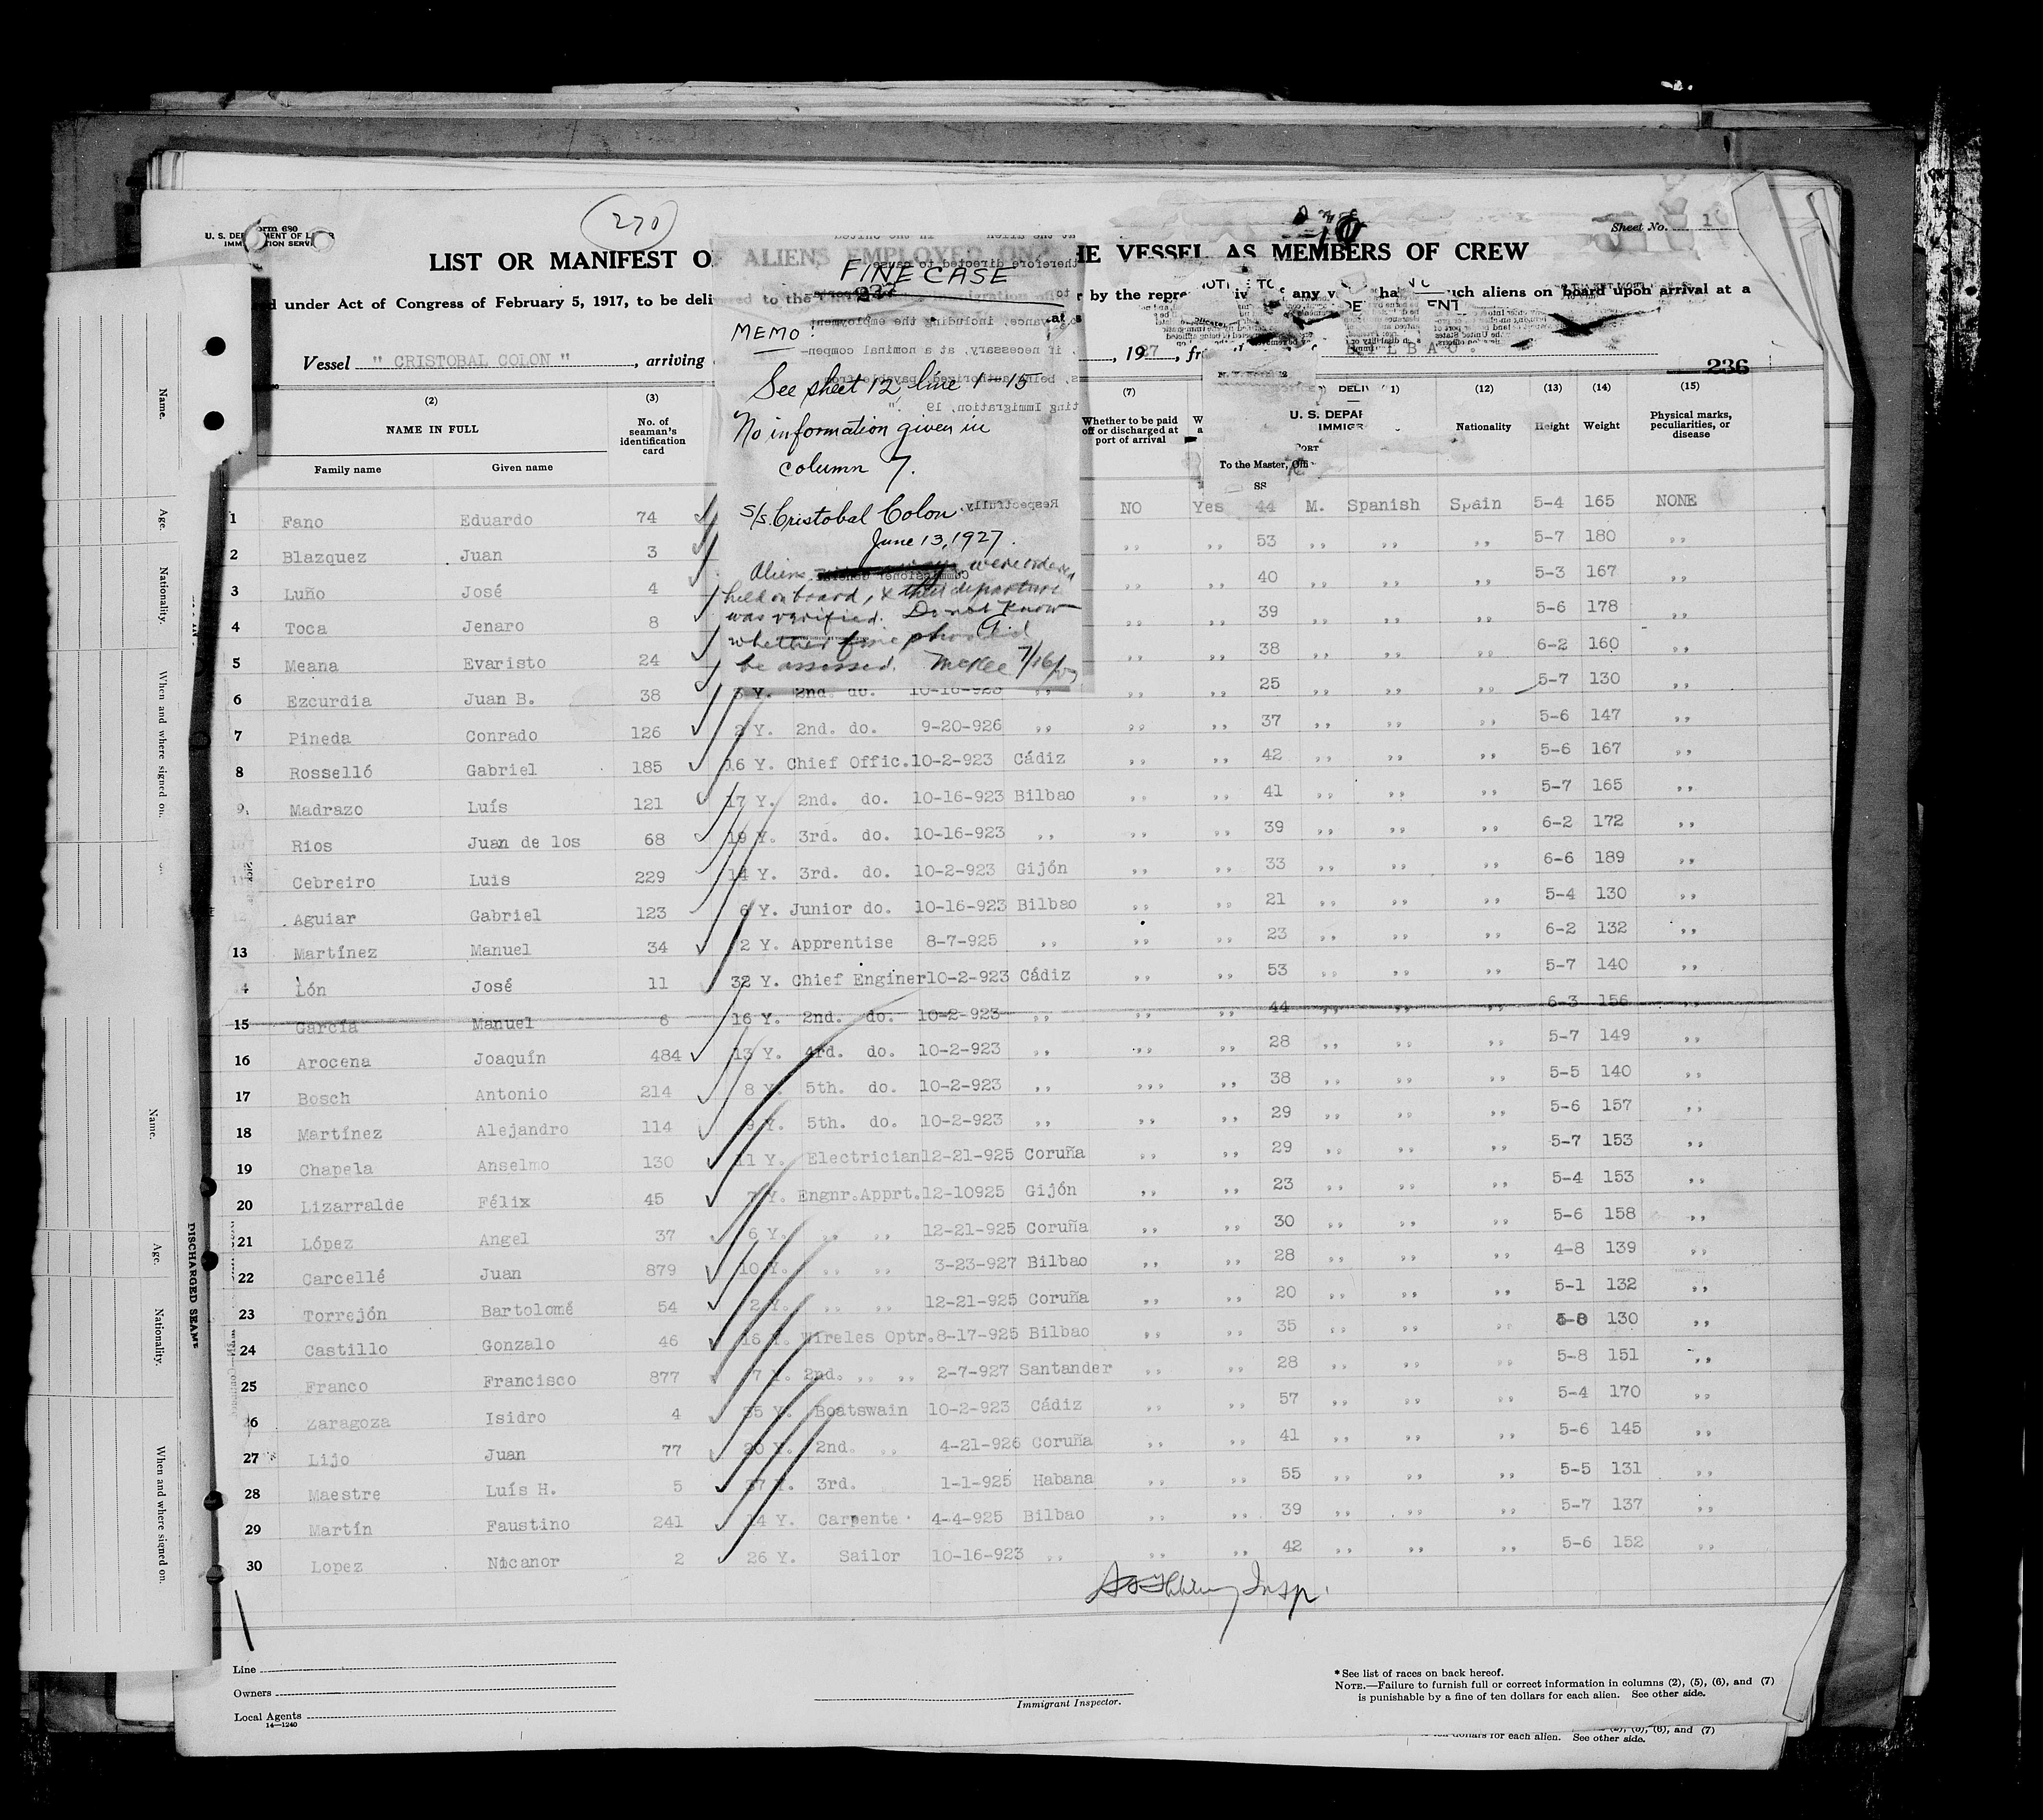 270
Form 680
U. S. DEPARTMENT OF LABOR
IMMIGRATION SERVICE
Sheet No. 1
LIST OR MANIFEST OF ALIENS EMPLOYED ON THE VESSEL AS MEMBERS OF CREW
under Act of Congress of February 5, 1917, to be delivered to the by the any such aliens on board upon arrival at a
Vessel " CRISTOBAL COLON " , arriving , 1927, BILBAO.
236
FINE CASE
237
MEMO:
See sheet 12, line 1 - 15
No information given in
column 7.
S/s. Cristobal Colon.
June 13, 1927.
Aliens were ordered
held on board, & their departure
was verified. Do not know
whether fine should
be assessed. McKee 7/16/27
(2) (3) (7) (12) (13) (14) (15)
NAME IN FULL
Family name Given name
No. of seaman's identification card
Whether to be paid off or discharged at port of arrival
Nationality Height Weight
Physical marks, peculiarities, or disease
U. S. DEPAR
IMMIGR
PORT
To the Master,
SS
1 Fano Eduardo 74 NO Yes 44 M. Spanish Spain 5-4 165 NONE
2 Blazquez Juan 3 ,, ,, 53 ,, ,, ,, 5-7 180 ,,
3 Luño José 4 ,, ,, 40 ,, ,, ,, 5-3 167 ,,
4 Toca Jenaro 8 ,, ,, 39 ,, ,, ,, 5-6 178 ,,
5 Meana Evaristo 24 ,, ,, 38 ,, ,, ,, 6-2 160 ,,
6 Ezcurdia Juan B. 38 3 Y. 2nd. do. 10-16-923 ,, ,, ,, 25 ,, ,, ,, 5-7 130 ,,
7 Pineda Conrado 126 2 Y. 2nd. do. 9-20-926 ,, ,, ,, 37 ,, ,, ,, 5-6 147 ,,
8 Rosselló Gabriel 185 16 Y. Chief Offic. 10-2-923 Cádiz ,, ,, 42 ,, ,, ,, 5-6 167 ,,
9 Madrazo Luís 121 17 Y. 2nd. do. 10-16-923 Bilbao ,, ,, 41 ,, ,, ,, 5-7 165 ,,
Rios Juan de los 68 19 Y. 3rd. do. 10-16-923 ,, ,, ,, 39 ,, ,, ,, 6-2 172 ,,
Cebreiro Luis 229 14 Y. 3rd. do. 10-2-923 Gijón ,, ,, 33 ,, ,, ,, 6-6 189 ,,
Aguiar Gabriel 123 6 Y. Junior do. 10-16-923 Bilbao ,, ,, 21 ,, ,, ,, 5-4 130 ,,
13 Martínez Manuel 34 2 Y. Apprentise 8-7-925 ,, ,, ,, 23 ,, ,, ,, 6-2 132 ,,
4 Lón José 11 32 Y. Chief Enginer 10-2-923 Cádiz ,, ,, 53 ,, ,, ,, 5-7 140 ,,
15 García Manuel 6 16 Y. 2nd. do. 10-2-923 ,, ,, ,, 44 ,, ,, ,, 6-3 156 ,,
16 Arocena Joaquín 484 13 Y. 4rd. do. 10-2-923 ,, ,, ,, 28 ,, ,, ,, 5-7 149 ,,
17 Bosch Antonio 214 8 Y. 5th. do. 10-2-923 ,, ,,, ,, 38 ,, ,, ,, 5-5 140 ,,
18 Martínez Alejandro 114 9 Y. 5th. do. 10-2-923 ,, ,, ,, 29 ,, ,, ,, 5-6 157 ,,
19 Chapela Anselmo 130 11 Y. Electrician 12-21-925 Coruña ,, ,, 29 ,, ,, ,, 5-7 153 ,,
20 Lizarralde Félix 45 7 Y. Engnr.Apprt. 12-10925 Gijón ,, ,, 23 ,, ,, ,, 5-4 153 ,,
21 López Angel 37 6 Y. ,, ,, 12-21-925 Coruña ,, ,, 30 ,, ,, ,, 5-6 158 ,,
22 Carcellé Juan 879 10 Y. ,, ,, 3-23-927 Bilbao ,, ,, 28 ,, ,, ,, 4-8 139 ,,
23 Torrejón Bartolomé 54 2 Y. ,, ,, 12-21-925 Coruña ,, ,, 20 ,, ,, ,, 5-1 132 ,,
24 Castillo Gonzalo 46 16 Y. Wireles Optr. 8-17-925 Bilbao ,, ,, 35 ,, ,, ,, 130 ,,
25 Franco Francisco 877 7 Y. 2nd. ,, ,, 2-7-927 Santander ,, ,, 28 ,, ,, ,, 5-8 151 ,,
26 Zaragoza Isidro 4 35 Y. Boatswain 10-2-923 Cádiz ,, ,, 57 ,, ,, ,, 5-4 170 ,,
27 Lijo Juan 77 20 Y. 2nd. ,, 4-21-926 Coruña ,, ,, 41 ,, ,, ,, 5-6 145 ,,
28 Maestre Luís H. 5 37 Y. 3rd. 1-1-925 Habana ,, ,, 55 ,, ,, ,, 5-5 131 ,,
29 Martín Faustino 241 14 Y. Carpente 4-4-925 Bilbao ,, ,, 39 ,, ,, ,, 5-7 137 ,,
30 Lopez Nicanor 2 26 Y. Sailor 10-16-923 ,, ,, ,, 42 ,, ,, ,, 5-6 152 ,,
Insp.
Line
Owners
Local Agents
14—1240
Immigrant Inspector.
* See list of races on back hereof.
NOTE.—Failure to furnish full or correct information in columns (2), (5), (6), and (7)
is punishable by a fine of ten dollars for each alien. See other side.
(2), (5), (6), and (7)
ten dollars for each alien. See other side.
Name.
Age.
Nationality.
When and where signed on.
Name.
Age.
Nationality.
When and where signed on.
DISCHARGED SEAME